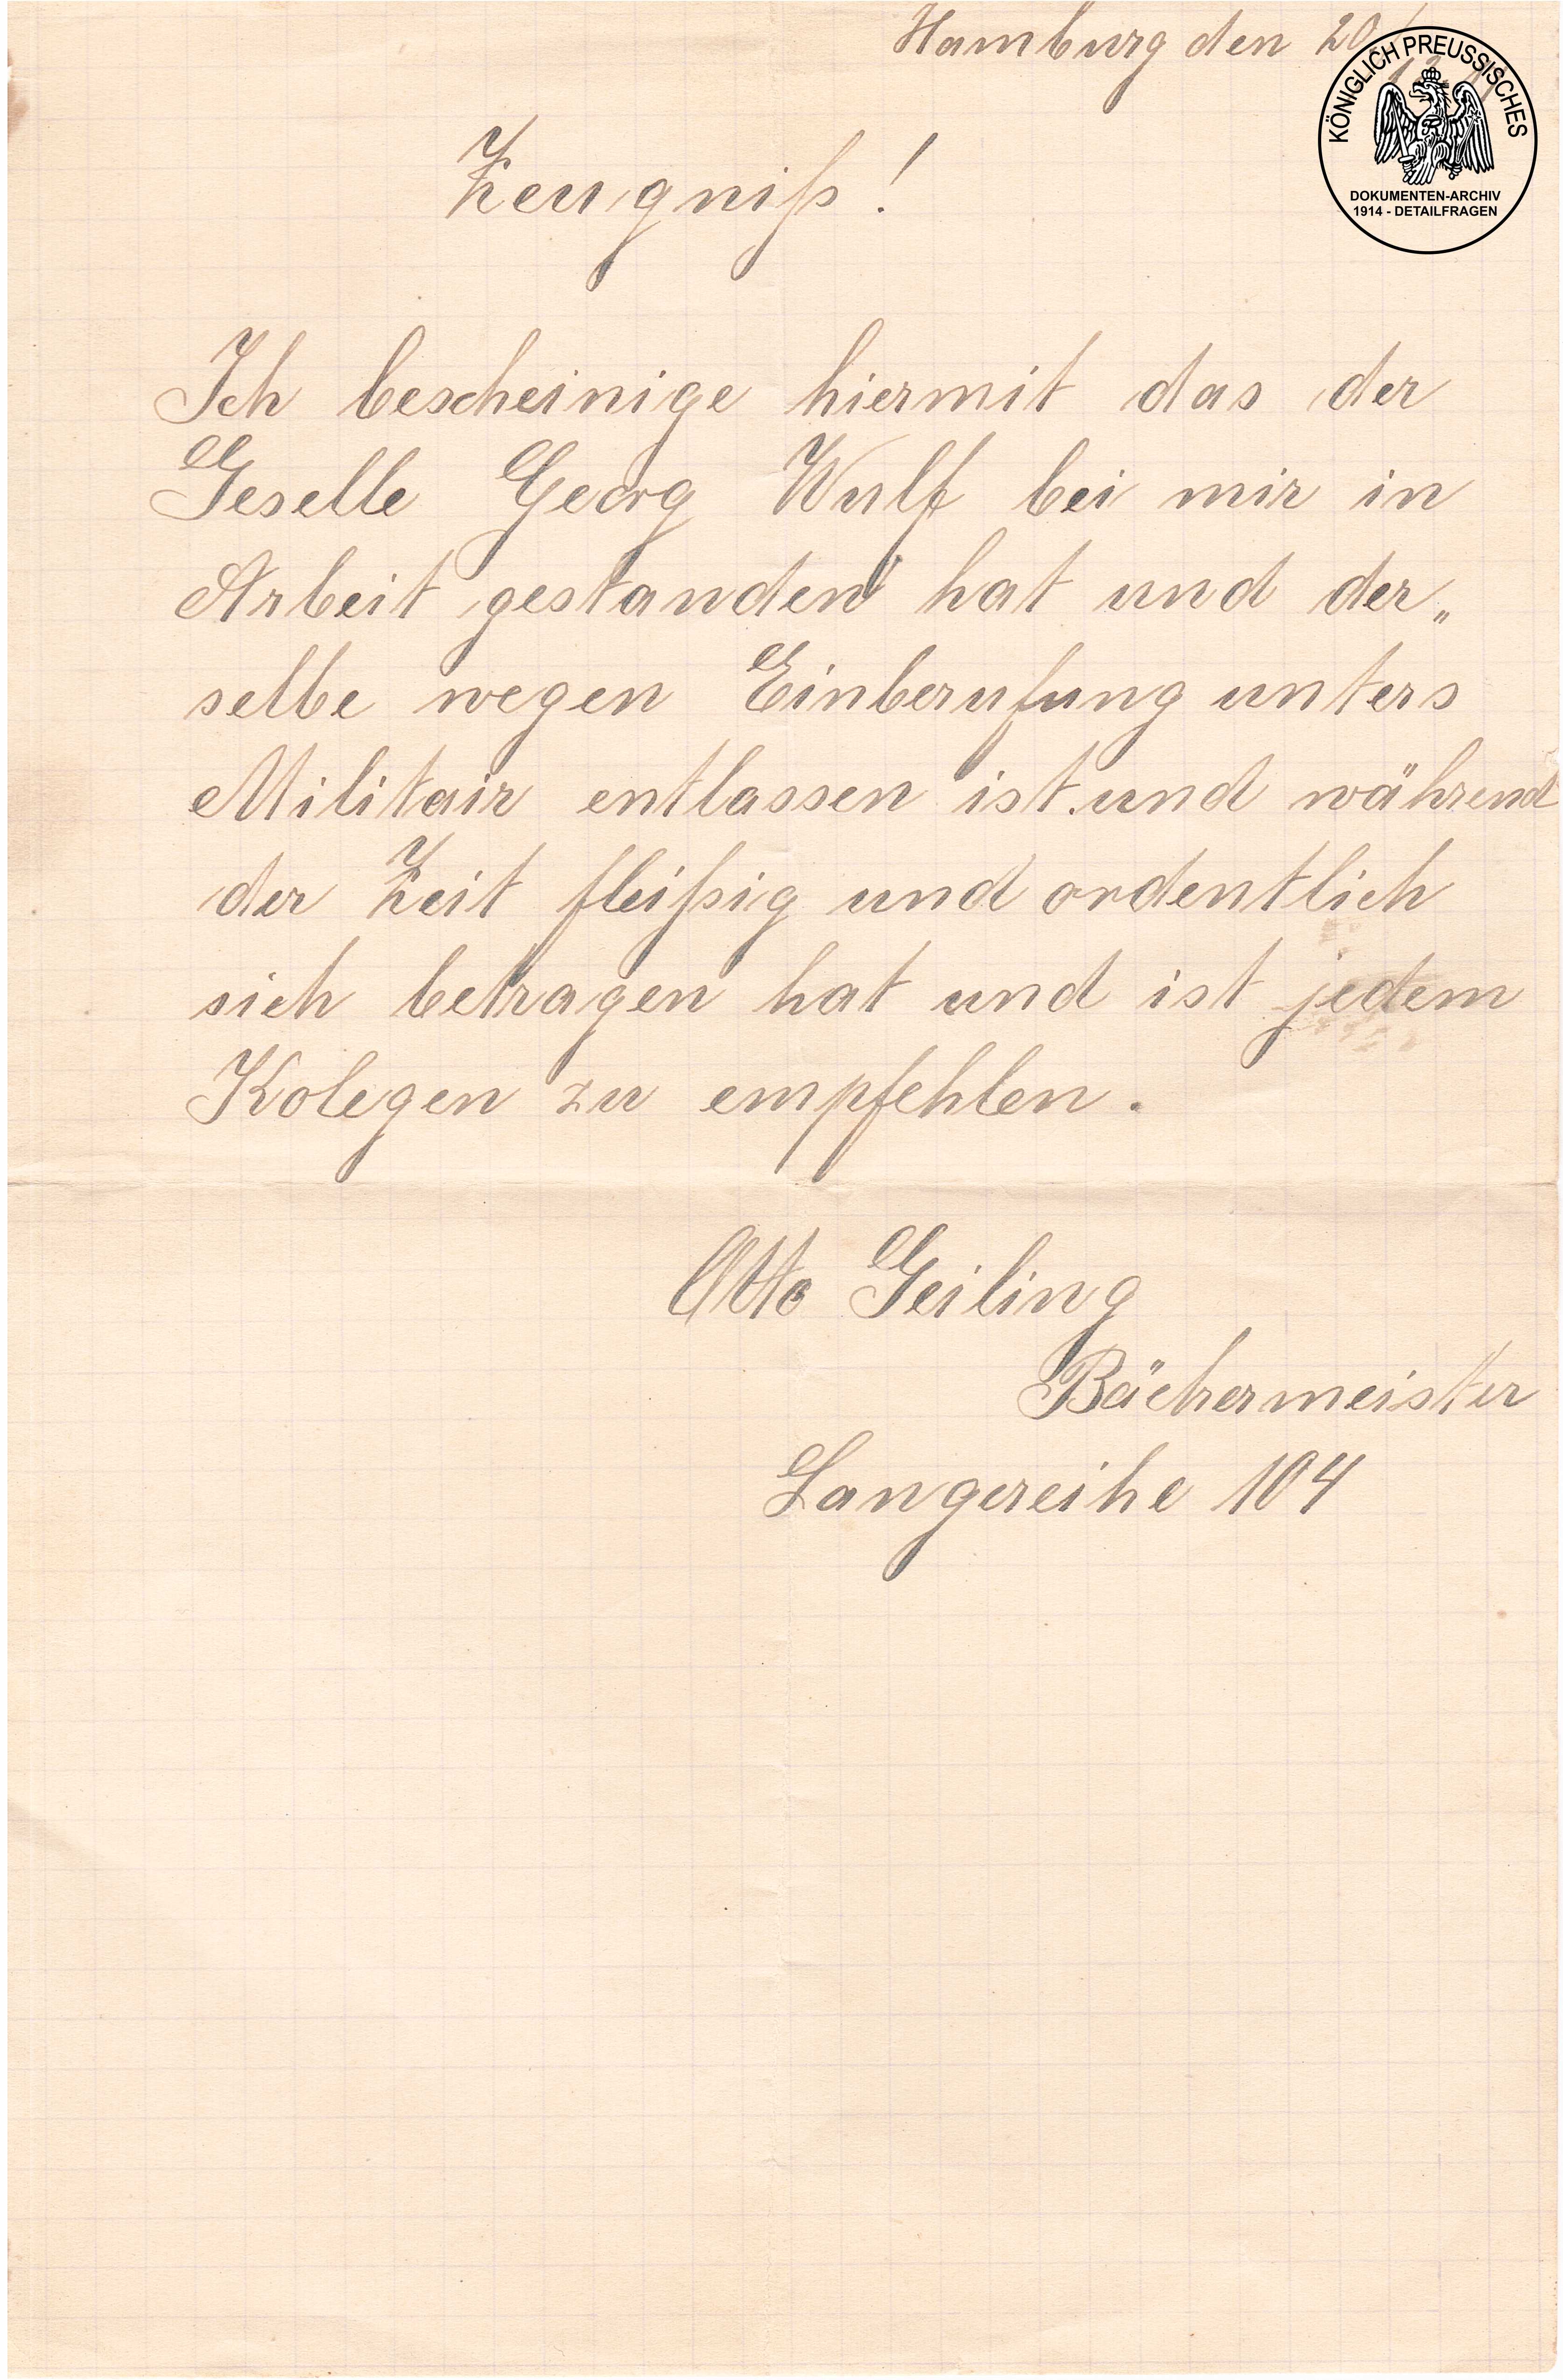 Hamburg den 20/
KÖNIGLICH PREUSSISCHES
DOKUMENTEN-ARCHIV
1914 - DETAILFRAGEN
Zeugniß!
Ich bescheinige hiermit das der
Geselle Georg Wulf bei mir in
Arbeit gestanden hat und der„
selbe wegen Einberufung unters
Militair entlassen ist. und während
der Zeit fleißig und ordentlich
sich betragen hat und ist jedem
Kolegen zu empfehlen.
Otto Geiling
Bäckermeister
Langereihe 104